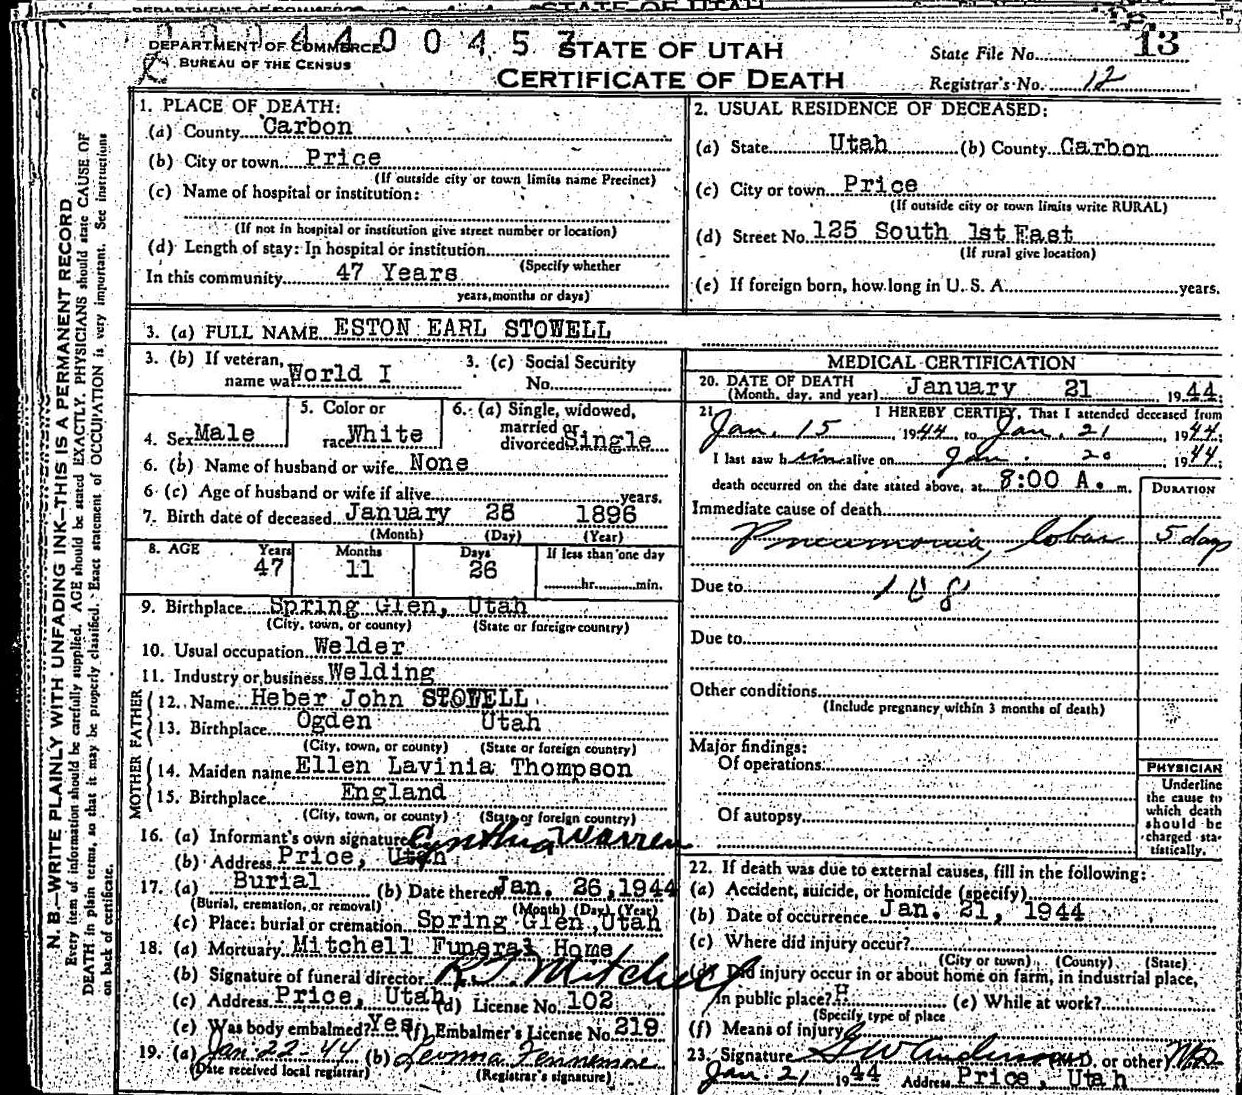 DEPARTMENT OF COMMERCE
BUREAU OF THE CENSUS
0 0 4 4 0 0 4 5 7
STATE OF UTAH
CERTIFICATE OF DEATH
State File No. 13
Registrar's No. 12
N. B.—WRITE PLAINLY WITH UNFADING INK—THIS IS A PERMANENT RECORD
Every item of information should be carefully supplied. AGE should be stated EXACTLY. PHYSICIANS should state CAUSE OF
DEATH in plain terms, so that it may be properly classified. Exact statement of OCCUPATION is very important. See instructions
on back of certificate.
1. PLACE OF DEATH:
(a) County Carbon
(b) City or town Price
(If outside city or town limits name Precinct)
(c) Name of hospital or institution:
(If not in hospital or institution give street number or location)
(d) Length of stay: In hospital or institution
(Specify whether
In this community 47 Years
years, months or days)
2. USUAL RESIDENCE OF DECEASED:
(a) State Utah (b) County Carbon
(c) City or town Price
(If outside city or town limits write RURAL)
(d) Street No. 125 South 1st East
(If rural give location)
(e) If foreign born, how long in U. S. A. years.
3. (a) FULL NAME ESTON EARL STOWELL
3. (b) If veteran, name war World I
3. (c) Social Security No.
4. Sex Male
5. Color or race White
6. (a) Single, widowed, married or divorced Single
6. (b) Name of husband or wife None
6 (c) Age of husband or wife if alive years.
7. Birth date of deceased January 26 1896
(Month) (Day) (Year)
8. AGE Years Months Days If less than one day
47 11 26 hr. min.
9. Birthplace Spring Glen, Utah
(City, town, or county) (State or foreign country)
10. Usual occupation Welder
11. Industry or business Welding
FATHER
12. Name Heber John STOWELL
13. Birthplace Ogden Utah
(City, town, or county) (State or foreign country)
MOTHER
14. Maiden name Ellen Lavinia Thompson
15. Birthplace England
(City, town, or county) (State or foreign country)
16. (a) Informant's own signature Cynthia Warren
(b) Address Price, Utah
17. (a) Burial (b) Date thereof Jan. 26, 1944
(Burial, cremation, or removal) (Month) (Day) (Year)
(c) Place: burial or cremation Spring Glen, Utah
18. (a) Mortuary Mitchell Funeral Home
(b) Signature of funeral director Mitchell
(c) Address Price, Utah (d) License No. 102
(e) Was body embalmed? Yes (f) Embalmer's License No. 219
19. (a) Jan. 22-44 (b) Leonna Fennemore
(Date received local registrar) (Registrar's signature)
MEDICAL CERTIFICATION
20. DATE OF DEATH January 21 1944;
(Month, day, and year)
21. I HEREBY CERTIFY, That I attended deceased from
Jan. 15, 1944, to Jan. 21, 1944;
I last saw him alive on Jan. 20 1944;
death occurred on the date stated above, at 8:00 A. m.
DURATION
Immediate cause of death
Pneumonia, lobar 5 days
Due to 108
Due to
Other conditions
(Include pregnancy within 3 months of death)
Major findings:
Of operations
Of autopsy
PHYSICIAN
Underline
the cause to
which death
should be
charged sta-
tistically.
22. If death was due to external causes, fill in the following:
(a) Accident, suicide, or homicide (specify)
(b) Date of occurrence Jan. 21, 1944
(c) Where did injury occur?
(City or town) (County) (State)
(d) Did injury occur in or about home on farm, in industrial place,
in public place? H (e) While at work?
(Specify type of place
(f) Means of injury
23. Signature G W Anderson (M.D. or other) MD
Jan. 21 1944 Address Price, Utah